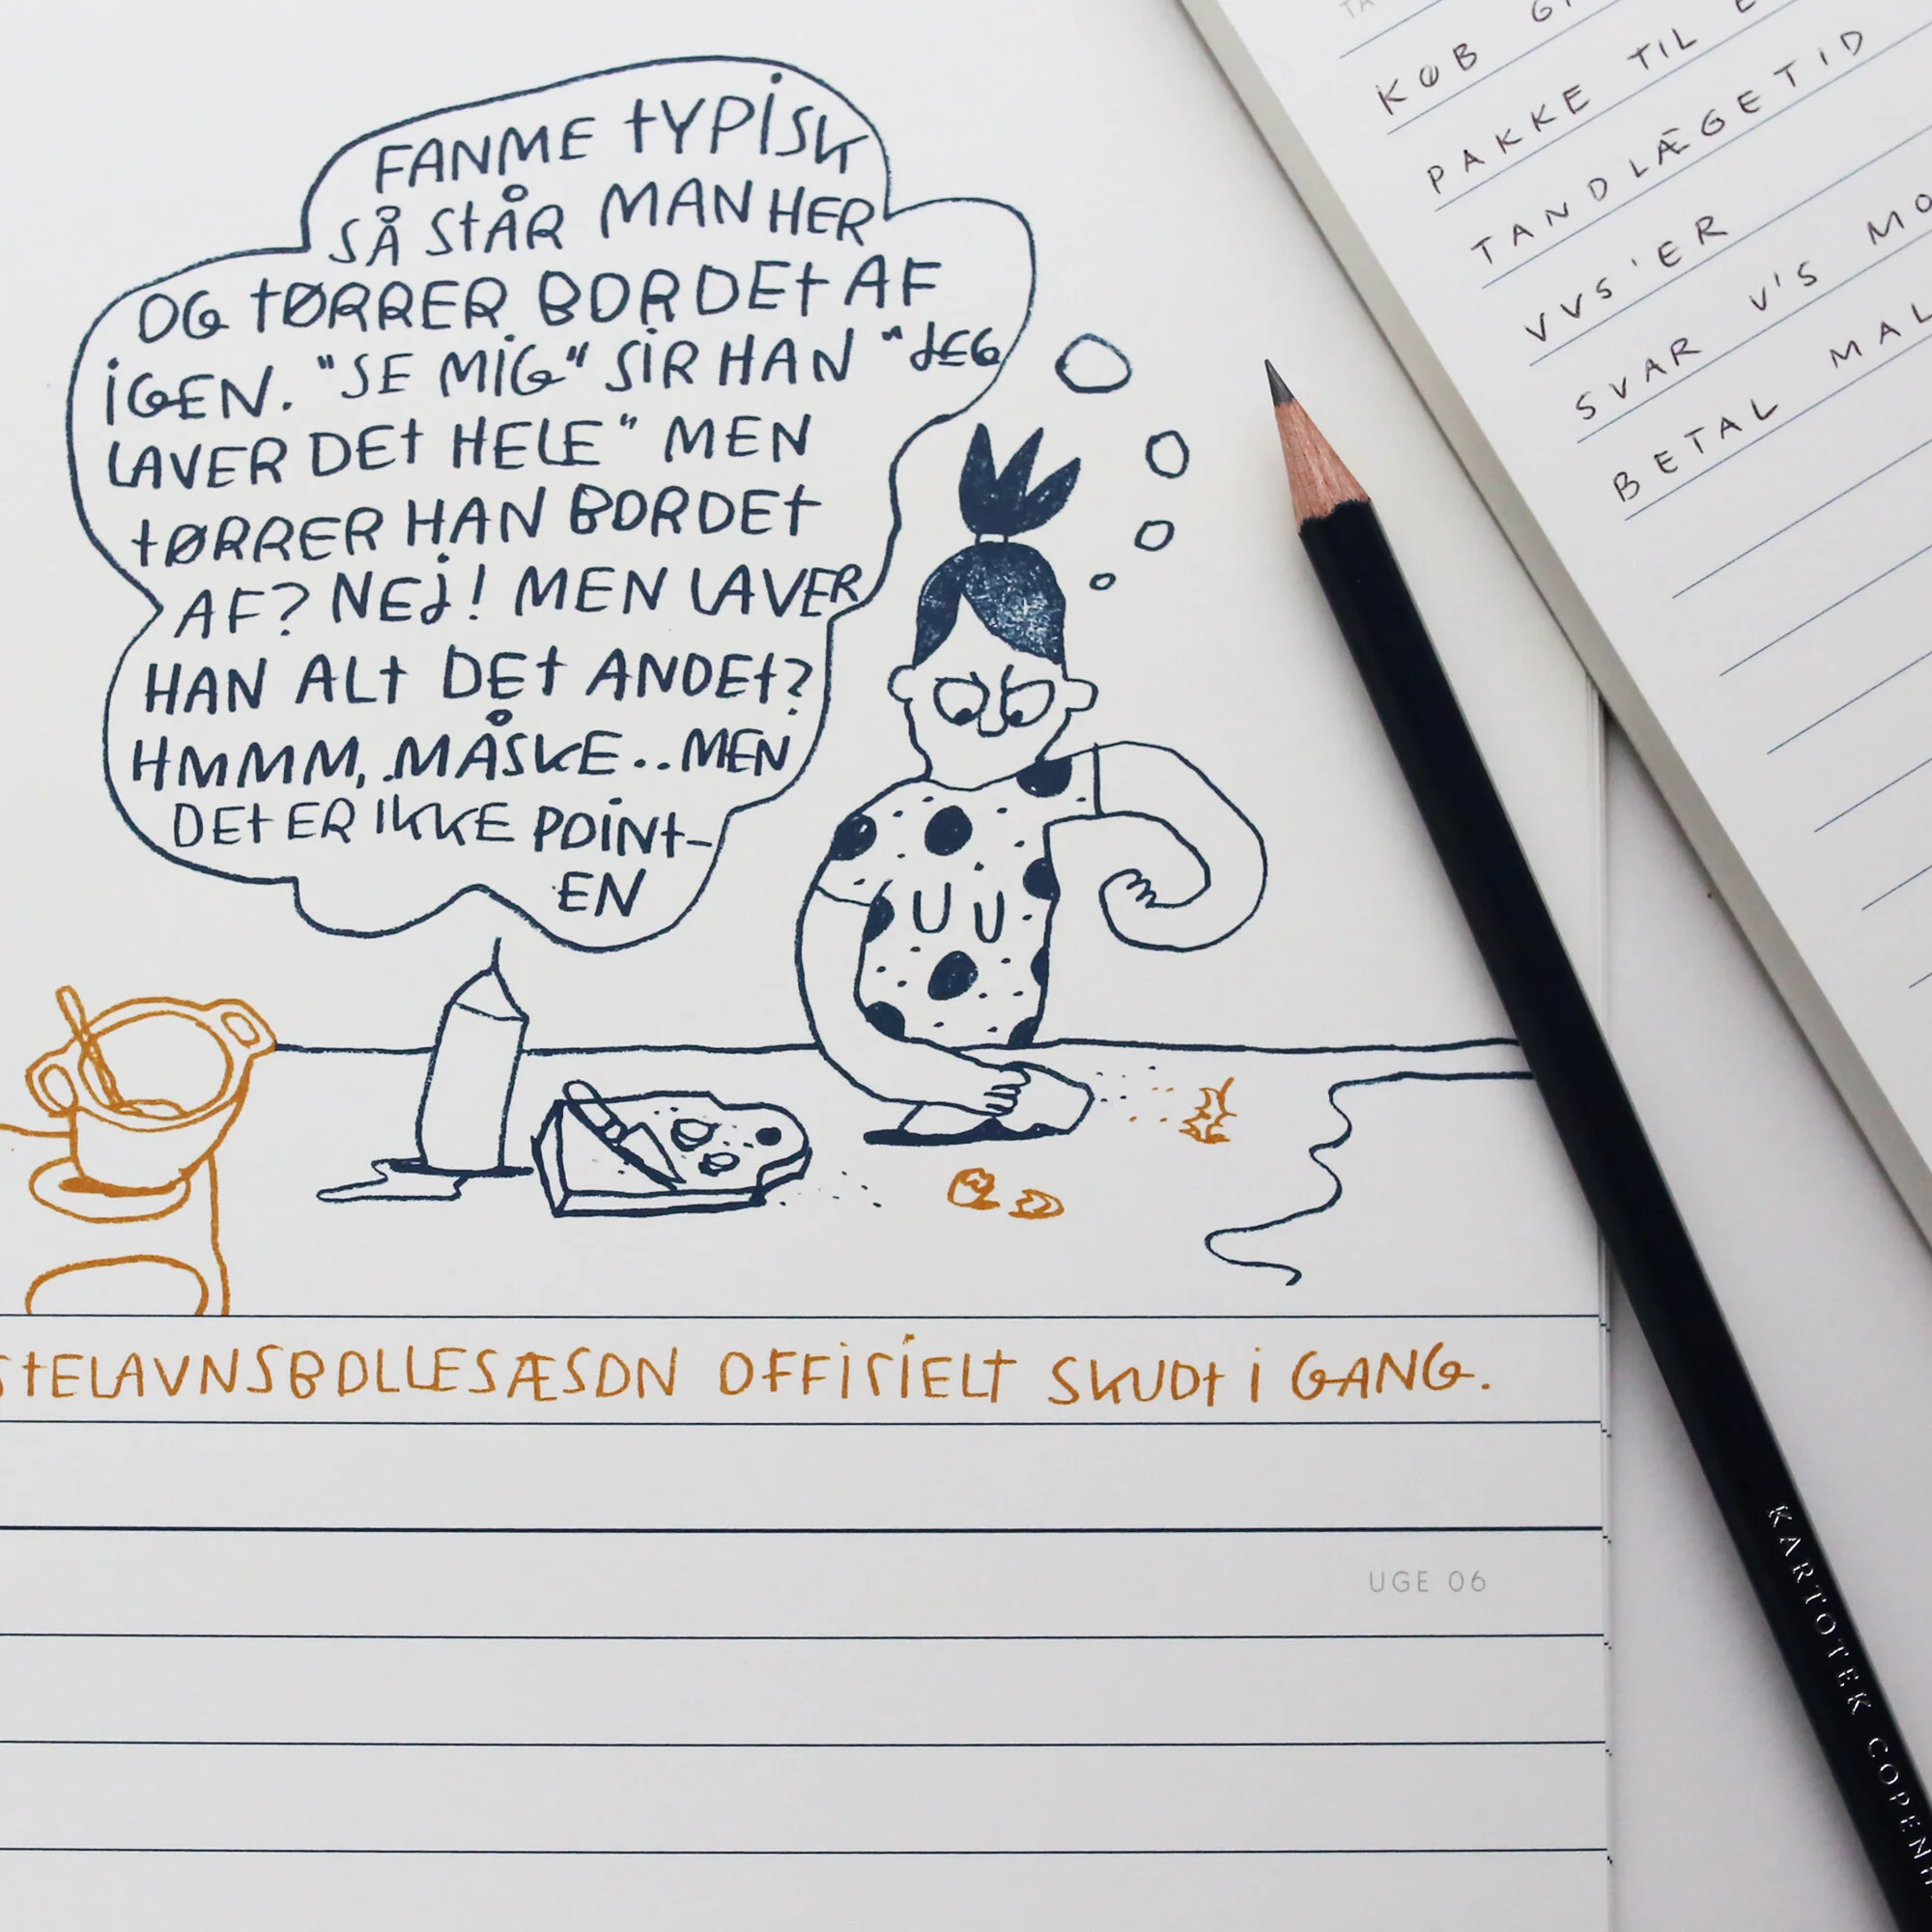 FANME TYPISK
SÅ STÅR MAN HER
OG TØRRER BORDET AF
IGEN. "SE MIG" SIR HAN "JEG
LAVER DET HELE" MEN
TØRRER HAN BORDET
AF? NEJ! MEN LAVER
HAN ALT DET ANDET?
HMMM, MÅSKE.. MEN
DET ER IKKE POINT-
EN
STELAVNSBOLLESÆSON OFFICIELT SKUDT I GANG.
UGE 06
KØB
PAKKE TIL
TANDLÆGETID
VVS'ER
SVAR V'S MO
BETAL MAL
KARTOTEK COPENH